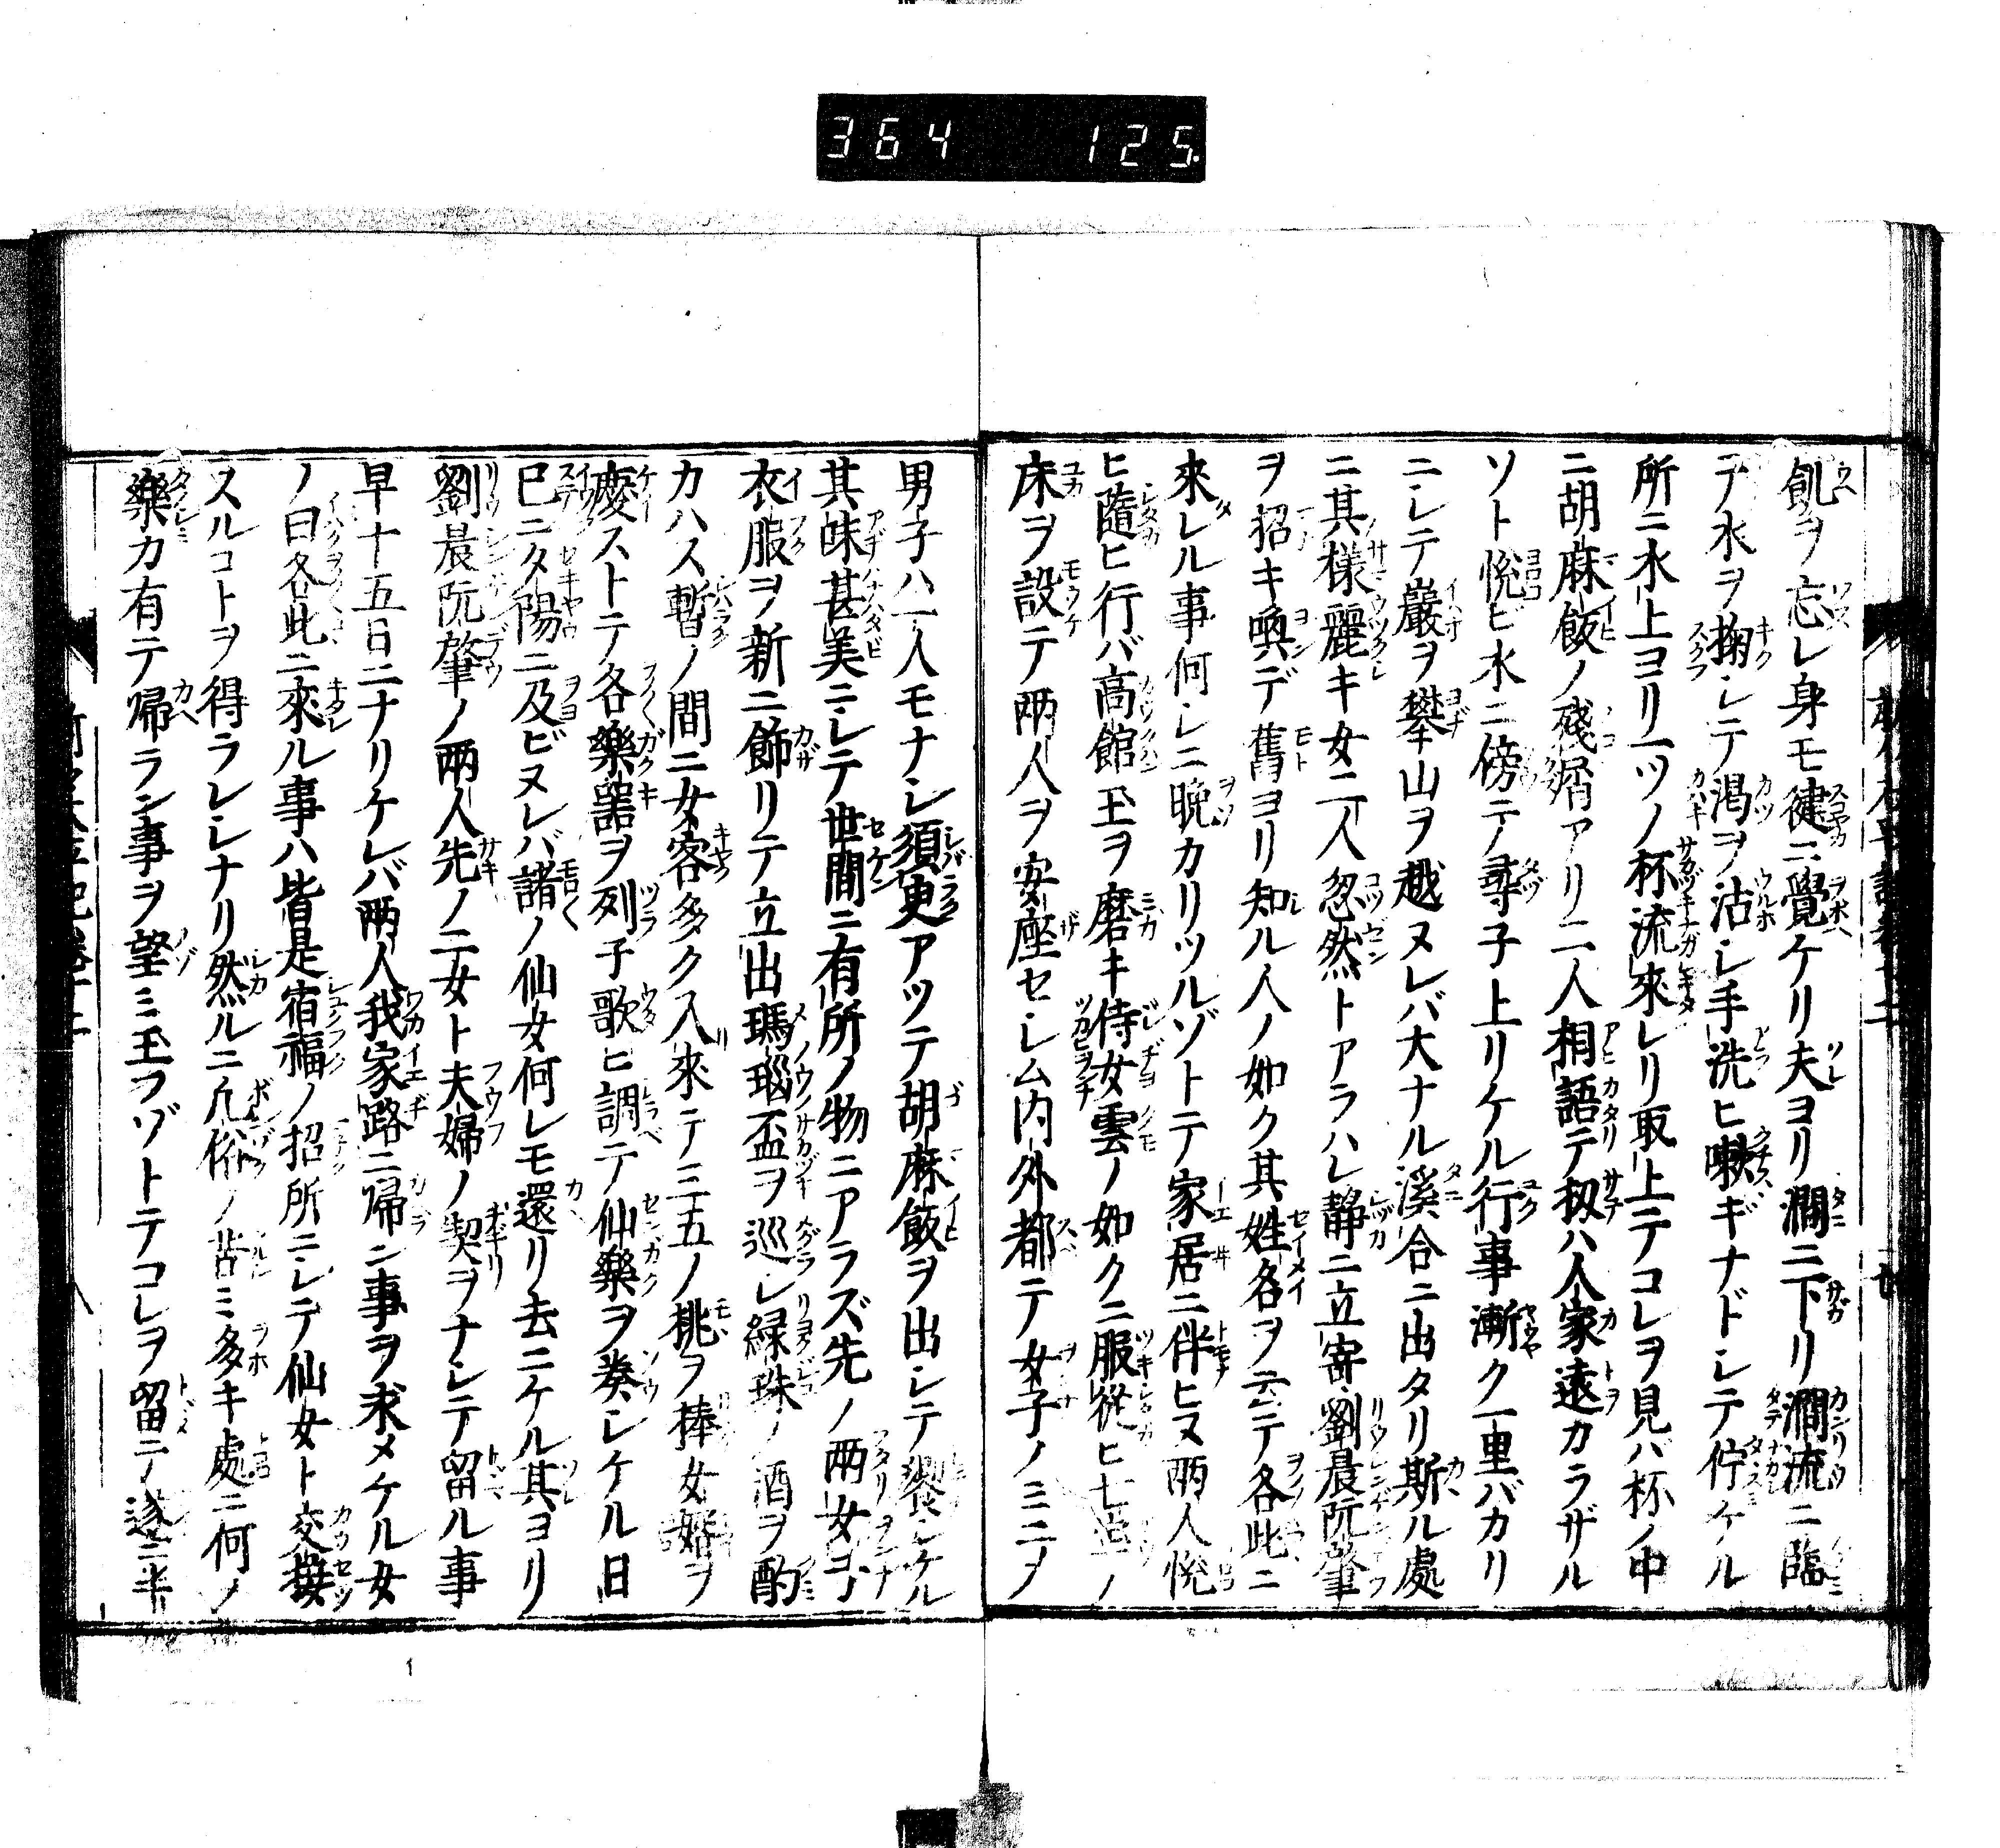 364 125
飢ヲ忘レ身モ健ニ覺ケリ夫ヨリ澗ニ下リ澗流ニ臨
テ水ヲ掬シテ渇ヲ沾シ手洗ヒ嗽ギナドシテ佇ケル
所ニ水上ヨリ一ツノ杯流來レリ取上テコレヲ見バ杯ノ中
ニ胡麻飯ノ殘屑アリ二人相語テ扨ハ人家遠カラザル
ソト悦ビ水ニ傍テ尋子上リケル行事漸ク一里バカリ
ニシテ巖ヲ攀山ヲ越ヌレバ大ナル溪合ニ出タリ斯ル處
ニ其樣麗キ女二人忽然トアラハレ靜ニ立寄劉晨阮肇
ヲ招キ喚デ舊ヨリ知ル人ノ如ク其姓名ヲ云テ各此ニ
來レル事何レニ晩カリツルゾトテ家居ニ伴ヒヌ兩人悦
ヒ隨ヒ行バ高館玉ヲ磨キ侍女雲ノ如クニ服從ヒ七宝ノ
床ヲ設テ兩人ヲ安座セシム内外都テ女子ノミニノ
男子ハ一人モナシ須臾アツテ胡麻飯ヲ出シテ饗シケル
其味甚美ニシテ世間ニ有所ノ物ニアラズ先ノ兩女ヨノ
衣服ヲ新ニ飾リテ立出瑪瑙盃ヲ巡シ緑珠ノ酒ヲ酌
カハス暫ノ間ニ女客多ク入來テ三五ノ桃ヲ捧女婿ヲ
慶ストテ各樂噐ヲ列子歌ヒ調テ仙樂ヲ奏シケル日
巳ニ夕陽ニ及ビヌレバ諸ノ仙女何レモ還リ去ニケル其ヨリ
劉晨阮肇ノ兩人先ノ二女ト夫婦ノ契ヲナシテ留ル事
早十五日ニナリケレバ兩人我家路ニ帰ン事ヲ求メケル女
ノ曰各此ニ來ル事ハ皆是宿福ノ招所ニシテ仙女ト交接
スルコトヲ得ラレシナリ然ルニ凡俗ノ苦ミ多キ處ニ何ノ
樂カ有テ帰ラン事ヲ望ミ玉フゾトテコレヲ留ニテ遂ニ半